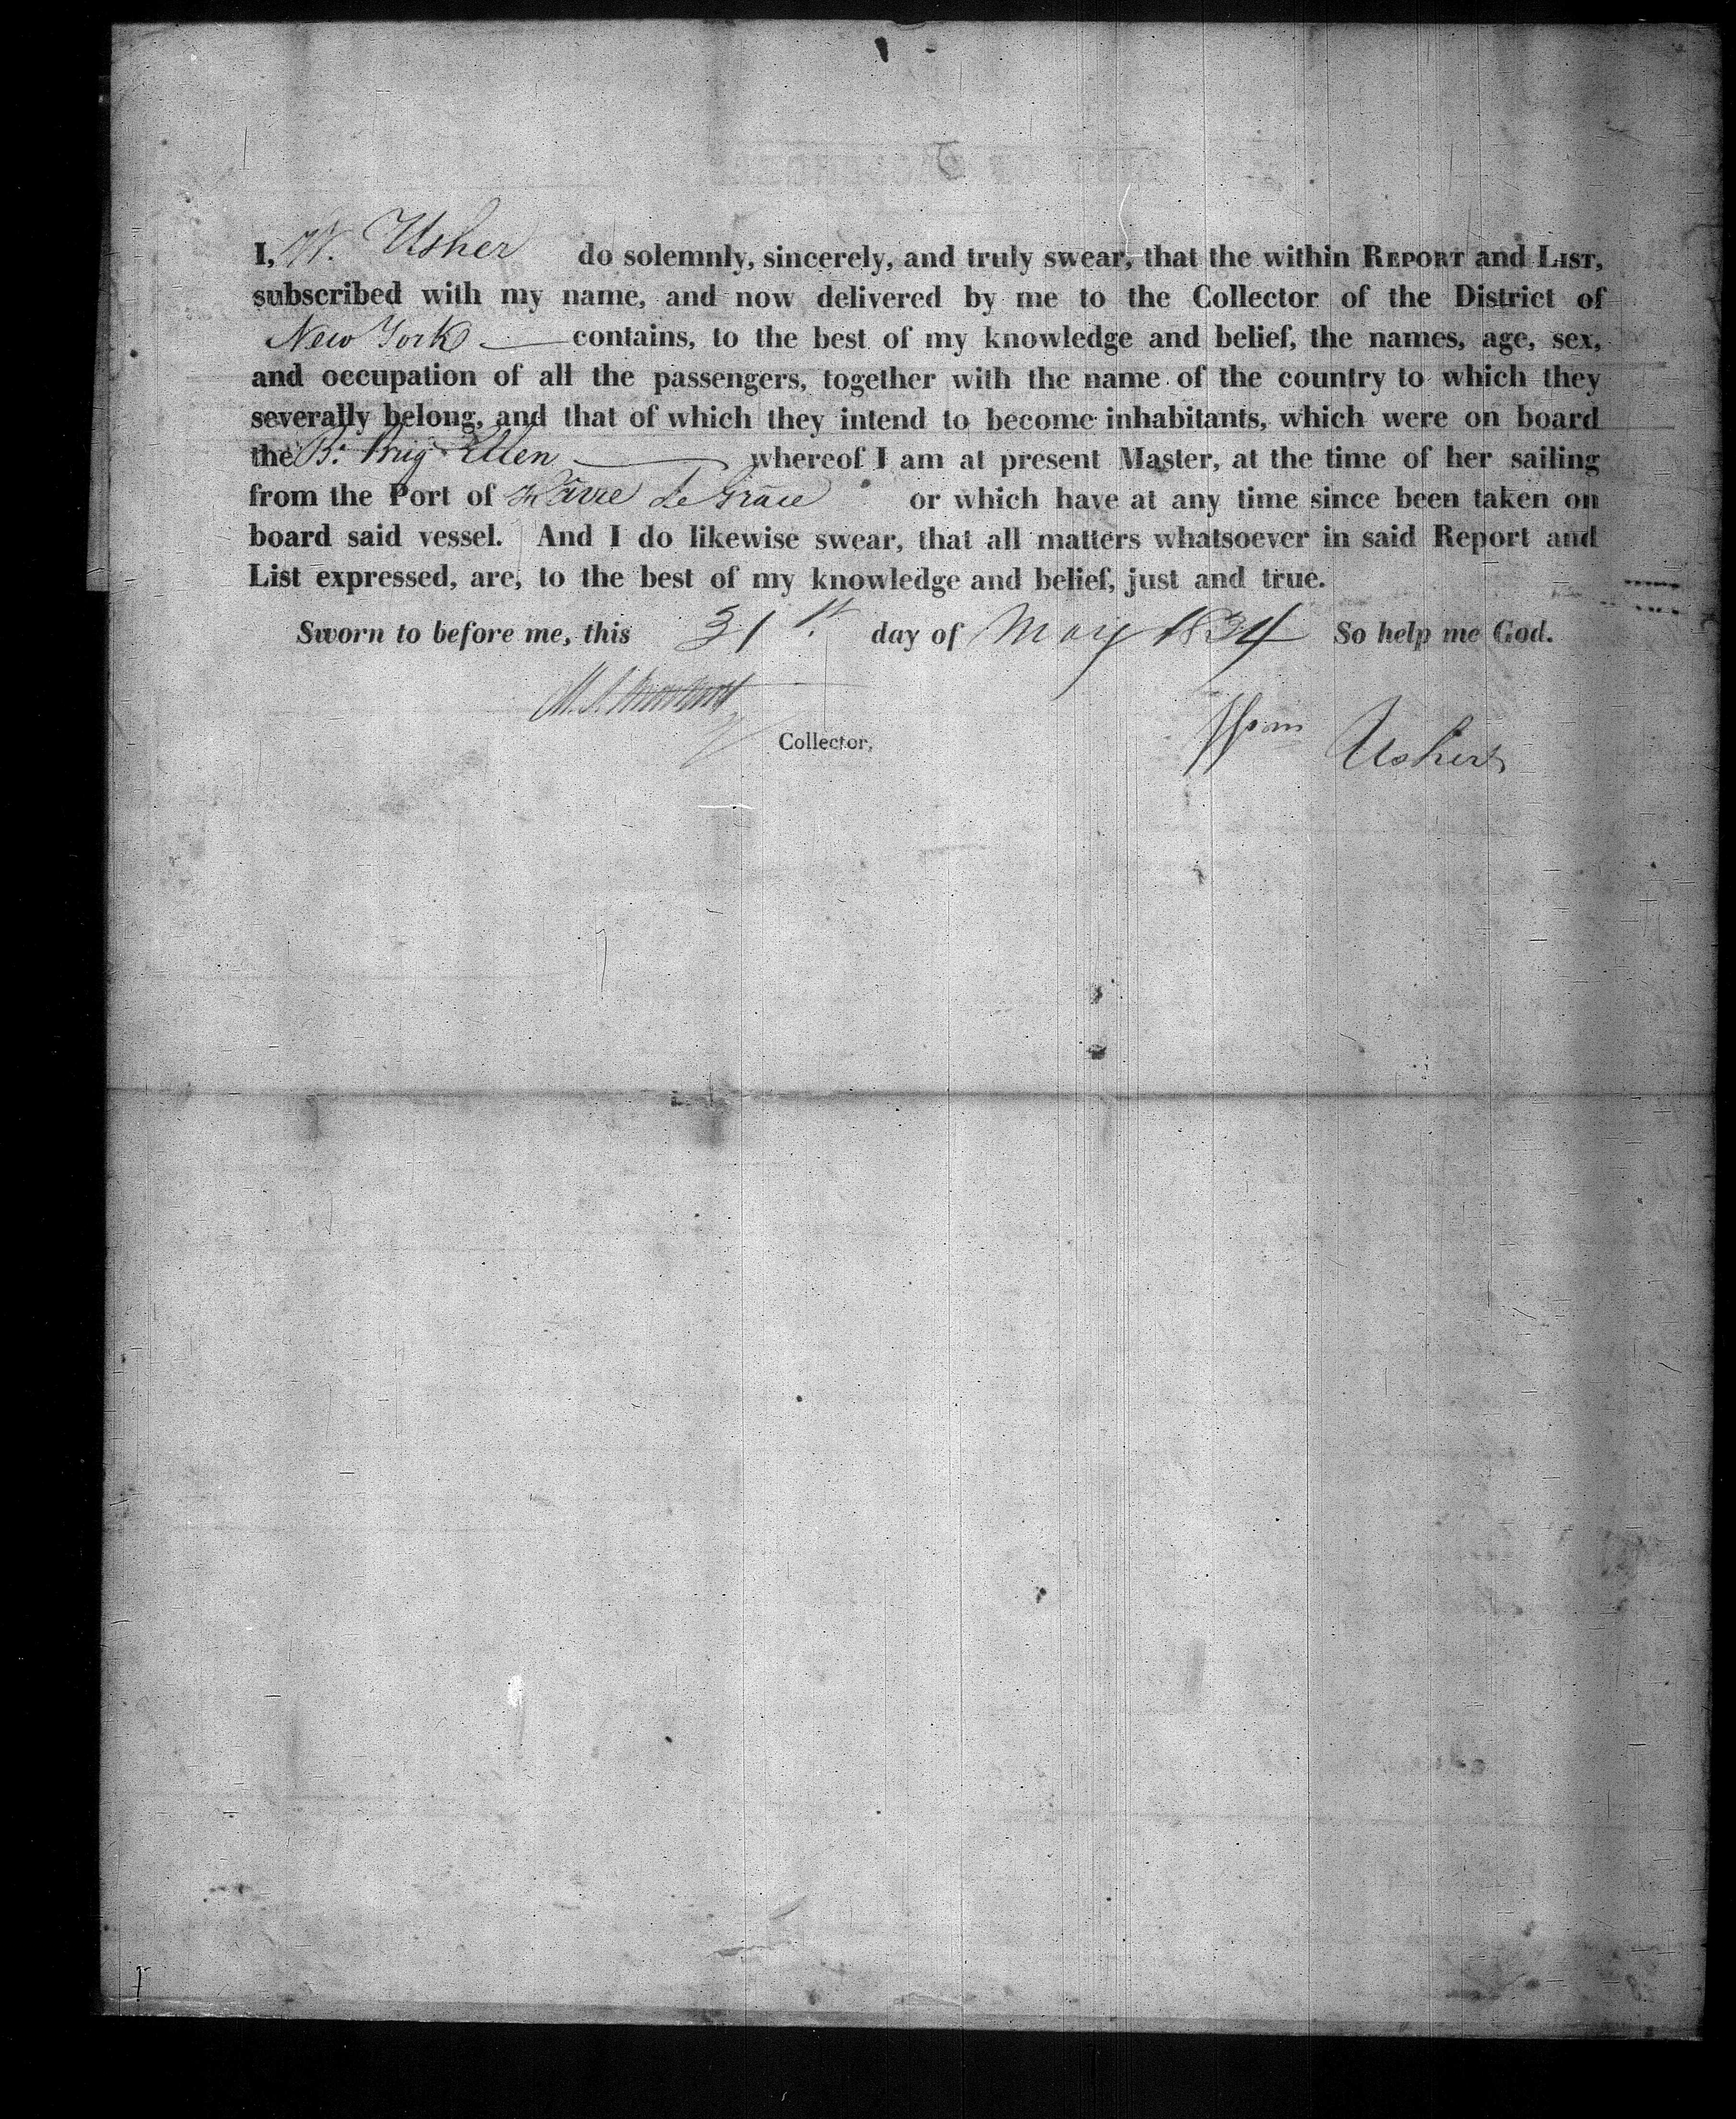 I, W. Usher do solemnly, sincerely, and truly swear, that the within REPORT and LIST,
subscribed with my name, and now delivered by me to the Collector of the District of
New York contains, to the best of my knowledge and belief, the names, age, sex,
and occupation of all the passengers, together with the name of the country to which they
severally belong, and that of which they intend to become inhabitants, which were on board
the Br. Brig Ellen whereof I am at present Master, at the time of her sailing
from the Port of Havre de Grace or which have at any time since been taken on
board said vessel. And I do likewise swear, that all matters whatsoever in said Report and
List expressed, are, to the best of my knowledge and belief, just and true.
Sworn to before me, this 31st day of May 1834 So help me God.
Wm Usher
Collector,